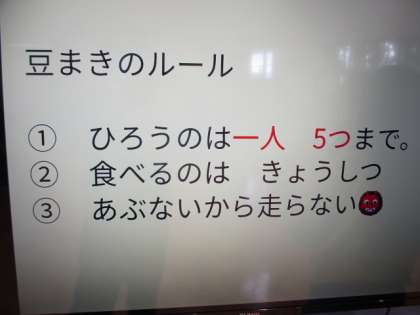 豆まきのルール
① ひろうのは一人 5つまで。
② 食べるのは きょうしつ
③ あぶないから走らない👹